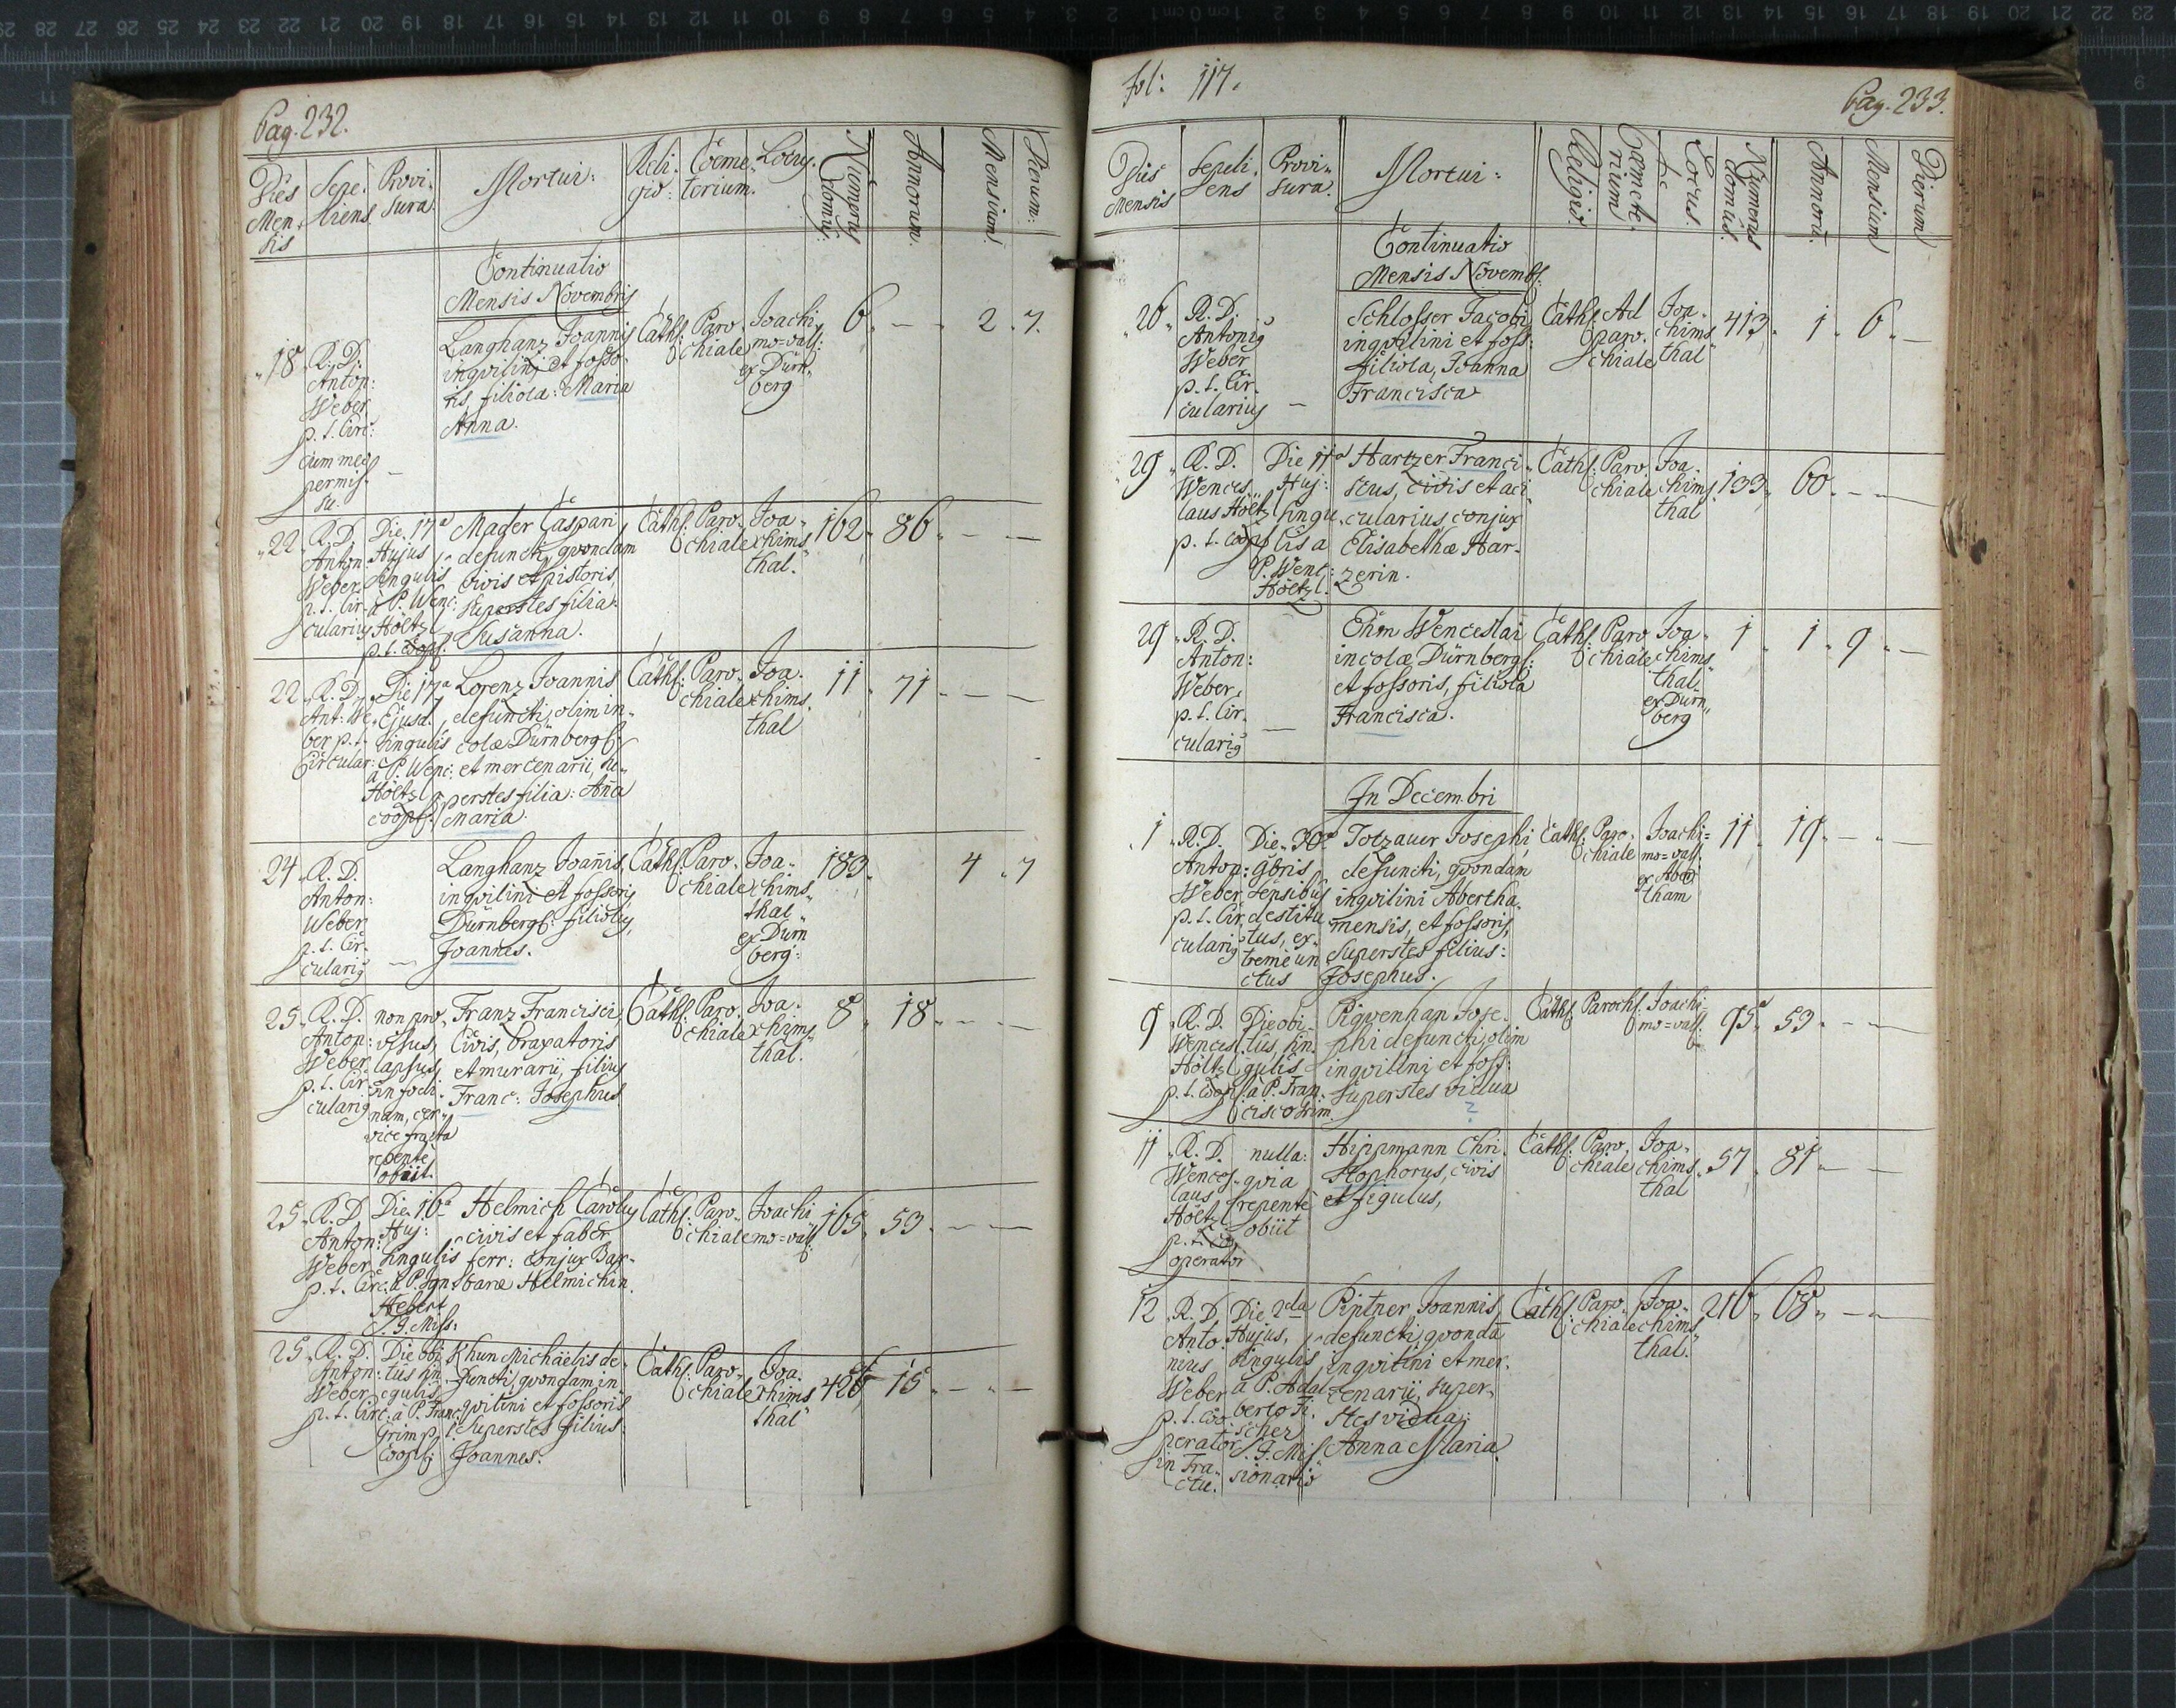 Pag. 232.
Dies Mensis
Sepeliens
Provisura
Mortui:
Religio:
Coemeterium.
Locus.
Numerus Domus:
Annorum.
Mensium.
Dierum:
Continuatio
Mensis Novembris
18 R. D.
Anton:
Weber
p. t. Circ:
cum meo
permis-
su.
Langhanz Joannis
inqvilini et fosso-
ris, filiola: Maria
Anna.
Cath: Paro- Joachi
chiale mo=vall:
ex Dürn-
berg
6. 2. 7.
22 R. D.
Anton
Weber
p. t. Cir-
cularius
Die 17a
Hujus
singulis
à P. Wenc:
Höltzl
p. t. coop:
Mader Caspari
defuncti, qvondam
Civis et pistoris,
superstes filia:
Susanna.
Cath: Paro- Joa-
chiale chims
thal.
162 86
22 R. D.
Ant: We-
ber p. t.
Circular:
Die 17a
Ejusd.
singulis
à P. Wenc:
Höltzl
coop:
Lorenz Joannis
defuncti, olim in-
colae Dürnberg:
et mercenarii, su-
perstes filia: Anna
Maria.
Cath: Paro- Joa-
chiale chims
thal
11 71
24 R. D.
Anton:
Weber
p. t. Cir-
cularis
Langhanz Joannis,
inqvilini et fossoris
Dürnberg: filiolus,
Joannes.
Cath: Paro- Joa-
chiale chims
thal
ex Dürn
berg:
183. 4 7
25 R. D.
Anton:
Weber
p. t. Cir-
cularis
non pro-
visus,
lapsus
in fodi-
nam, cer-
vice fracta
repente
obiit.
Franz Francisci,
Civis, braxatoris
et murarii, filius
Franc: Josephus
Cath: Paro- Joa-
chiale chims
thal.
8 18
25 R. D.
Anton:
Weber
p. t. Circ:
Die 16a
Huj:
singulis
à P. Ign
Hebert
S. J. Miss:
Helmich Carolus
civis et faber
ferr: conjux Bar-
barae Helmichin.
Cath: Paro- Joachi
chiale mo=vall
165 53
25 R. D.
Anton:
Weber
p. t. Circ:
Die obi-
tus sin-
gulis
à P. Franc:
Grimp
coop:
Khun Michäelis de-
functi, qvondam in-
qvilini et fossoris
superstes filius:
Joannes.
Cath: Paro- Joa-
chiale chims
thal
15
fol: 117.
Pag. 233.
Dies Mensis
Sepeliens
Provisura.
Mortui:
Religio
Coemeterium
et Locus.
Numerus domus.
Annorum.
Mensium
Dierum
Continuatio
Mensis Novemb:
26 R. D.
Antonius
Weber
p. t. Cir-
cularius
Schlosser Jacobi
inqvilini et foss:
filiola, Joanna
Francisca
Cath: Ad Joa-
paro- chims
chiale thal
413. 1. 6.
29 R. D.
Wences-
laus Höltzl
p. t. coop
Die 11a
Huj:
singu-
lis a
P. Wenc:
Höltzl.
Hartzer Franci-
scus, civis et aci-
cularius, conjux
Elisabethae Har-
zerin.
Cath: Paro- Joa-
chiale chims
thal
133 60
29 R. D.
Anton:
Weber,
p. t. Cir-
cularis
Ehm Wenceslai
incolae Dürnberg:
et fossoris, filiola
Francisca.
Cath: Paro- Joa-
chiale chims
thal
ex Dürn-
berg
1 1. 9
In Decembri
1 R. D.
Anton:
Weber
p. t. Cir-
cularis
Die 30a
9bris,
sensibus
destitu-
tus, ex-
treme un
ctus
Totzauer Josephi,
defuncti, qvondam
inqvilini Abertha-
mensis, et fossoris,
superstes filius:
Josephus.
Cath: Paro- Joachi=
chiale mo=vall.
ex Aber
tham
11 19
9 R. D.
Wences:
Höltzl
p. t. coop:
Die obi-
tus, sin-
gulis
à P. Fran-
cisco Grim
Pigvenhan Jose-
phi defuncti, olim
inqvilini et foss:
superstes vidua
?
Cath: Paroch: Joachi
mo=vall:
95 53
11 R. D.
Wences-
laus
Höltzl
p. t. co
operator
nulla:
qvia
repente
obiit
Hippmann Chri-
stophorus, civis
et figulus,
Cath: Paro- Joa-
chiale chims
thal
57 81
12 R. D.
Anto-
nius
Weber
p. t. coo-
perator
in Fra-
ctu.
Die 2da
Hujus,
singulis
à P. Adal-
berto Fi-
scher
S. J. Mis-
sionario
Pintner Joannis,
defuncti, qvondā
inqvilini et mer-
cenarii, super-
stes vidua:
Anna Maria.
Cath: Paro- Joa-
chiale chims
thal.
216 68